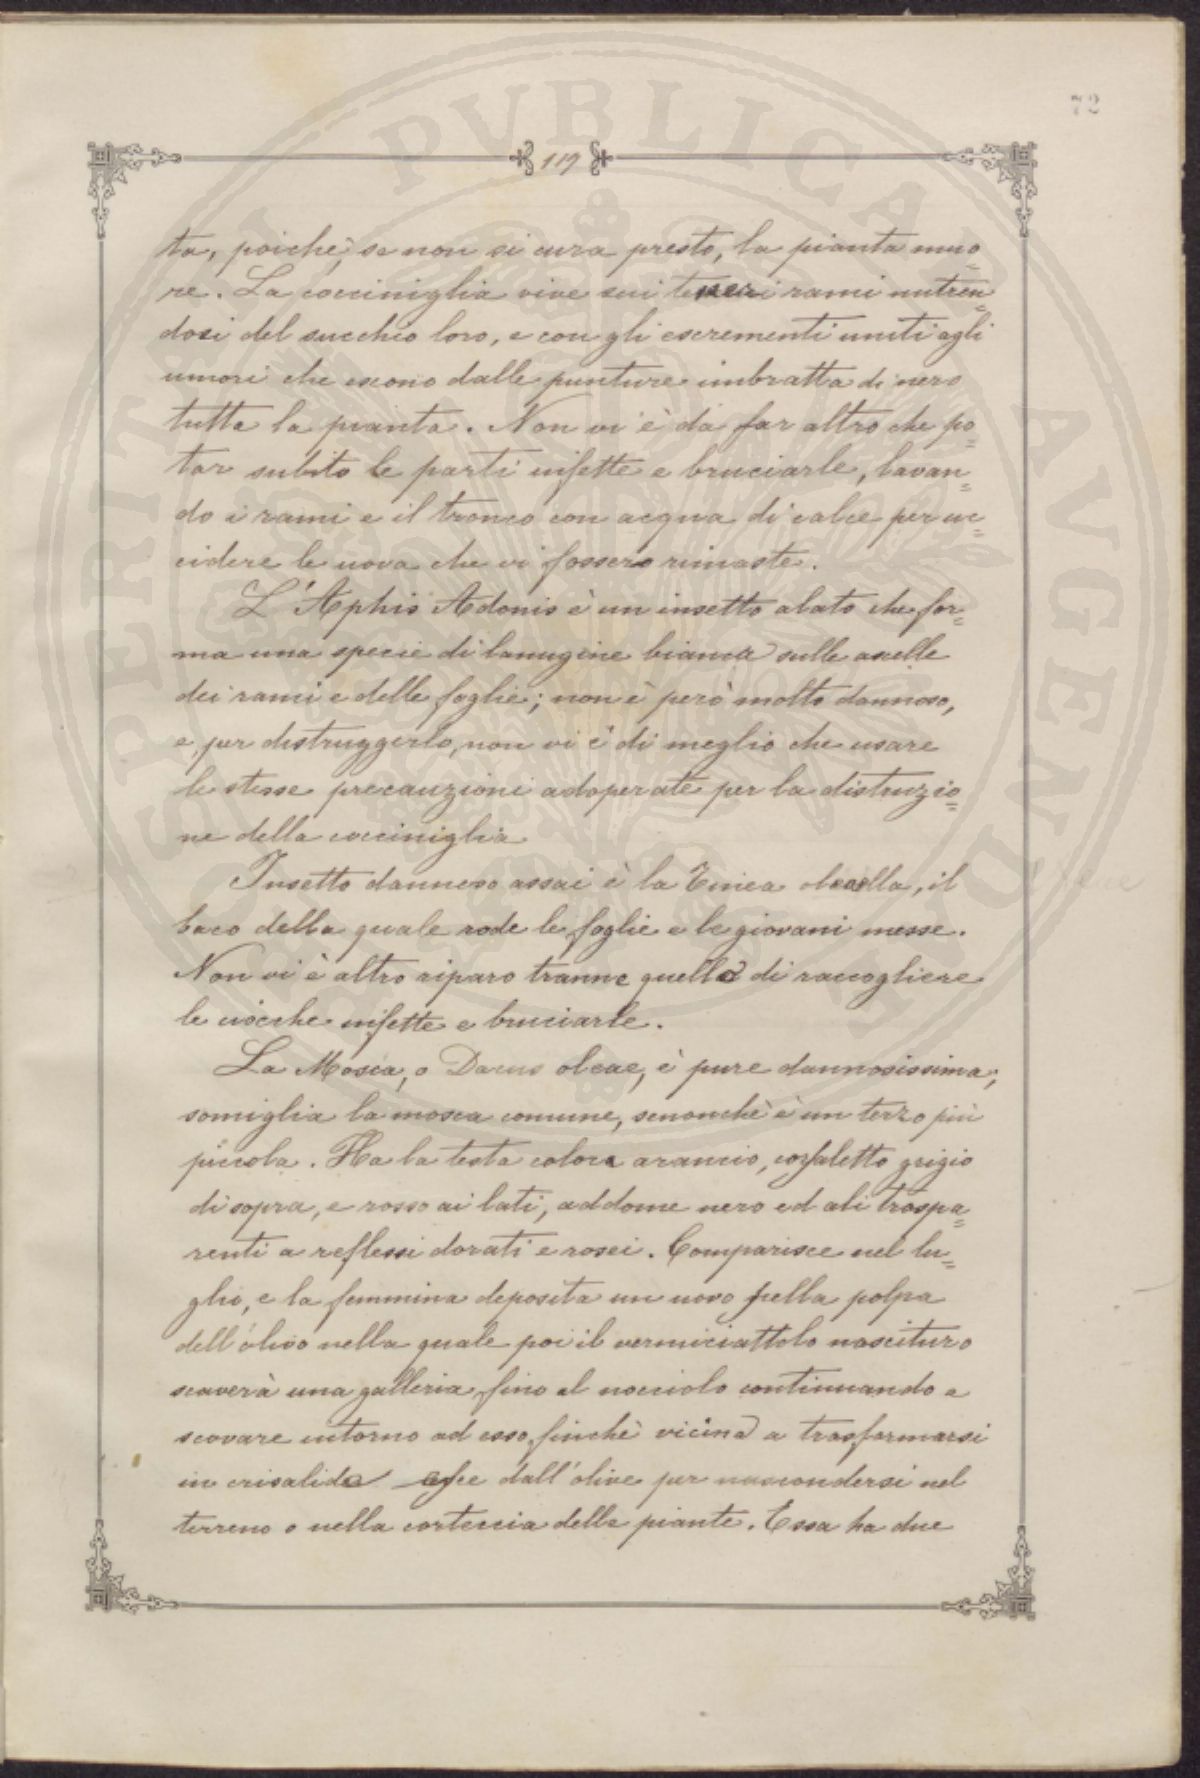 72
119
ta, poichè, se non si cura presto, la pianta muo-
re. La cocciniglia vive sui teneri rami nutren-
dosi del succhio loro, e con gli escrementi uniti agli
umori che escono dalle punture imbratta di nero
tutta la pianta. Non vi è da far altro che po-
tar subito le parti infette e bruciarle, lavan-
do i rami e il tronco con acqua di calce per uc-
cidere le uova che vi fossero rimaste.
L'Aphis Adonis è un insetto alato che for-
ma una specie di lanugine bianca sulle ascelle
dei rami e delle foglie; non è però molto dannoso,
e, per distruggerlo, non vi è di meglio che usare
le stesse precauzioni adoperate per la distruzio-
ne della cocciniglia
Insetto dannoso assai è la Tinea oleaella, il
baco della quale rode le foglie e le giovani messe.
Non vi è altro riparo tranne quello di raccogliere
le ciocche infette e bruciarle.
La Mosca, o Dacus oleae, è pure dannosissima;
somiglia la mosca comune, senonchè è un terzo più
piccola. Ha la testa colore arancio, corsaletto grigio
di sopra, e rosso ai lati, addome nero ed ali traspa-
renti a reflessi dorati e rosei. Comparisce nel lu-
glio, e la femmina deposita un uovo nella polpa
dell'oliva nella quale poi il vermiciattolo nascituro
scaverà una galleria fino al nocciolo continuando a
scavare intorno ad esso, finchè vicino a trasformarsi
in crisalide esce dall'olive per nascondersi nel
terreno o nella corteccia delle piante. Essa ha due
SPERITAS PVBLICAE AVGENDAE